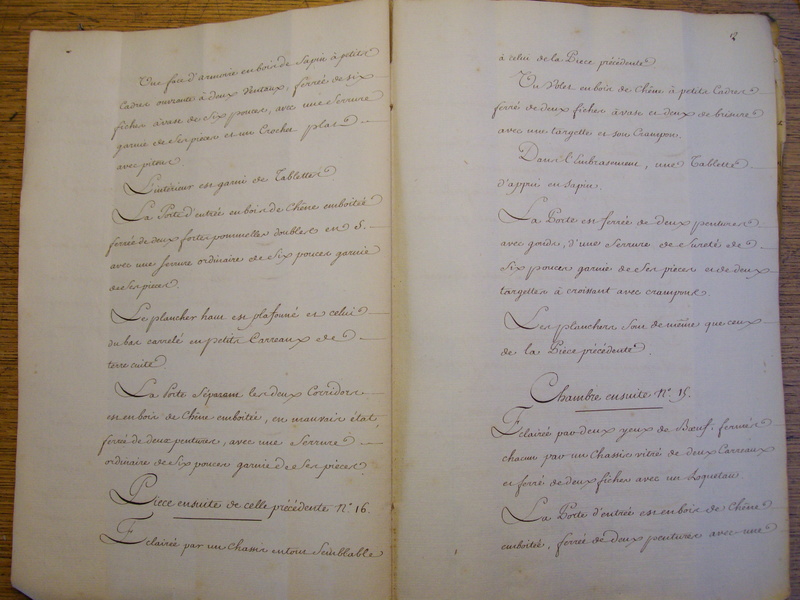 Une face d'armoire en bois de Sapin à petits
Cadres ouvrante à deux Venteaux, ferrée de six
fiches à vase de Six pouces, avec une Serrure
garnie de Ses pieces et un Crochet plat
avec pitons.
L'intérieur est garni de Tablettes
La Porte d'entrée en bois de Chêne emboîtée
ferrée de deux fortes pommelles doubles en S.
avec une serrure ordinaire de Six pouces garnie
de Ses pieces.
Le plancher haut est plafonné et celui
du bas carrelé en petits Carreaux de
terre cuite.
La Porte Séparant les deux Corridors
est en bois de Chêne emboîtée, en mauvais état,
ferrée de deux pentures, avec une Serrure
ordinaire de Six pouces garnie de Ses pieces.
Piece ensuite de celle précédente N.º 16.
Eclairée par un Chassis en tout Semblable
12
à celui de la Piece précédente
Un Volet en bois de Chêne à petits Cadres
ferré de deux fiches à vase et deux de brisure
avec une targette et son Crampon.
Dans l'Embrasement, une Tablette
d'appui en Sapin.
La Porte est ferrée de deux pentures
avec gonds, d'une Serrure de Sureté de
Six pouces garnie de Ses pieces et de deux
targettes à croissant avec crampons.
Les planchers sont de même que ceux
de la Piece précédente.
Chambre ensuite N.º 15.
Eclairée par deux yeux de Bœuf, fermés
chacun par un Chassis vitré de deux Carreaux
et ferré de deux fiches avec un Loqueteau.
La Porte d'entrée est en bois de Chêne
emboîtée, ferrée de deux pentures avec une